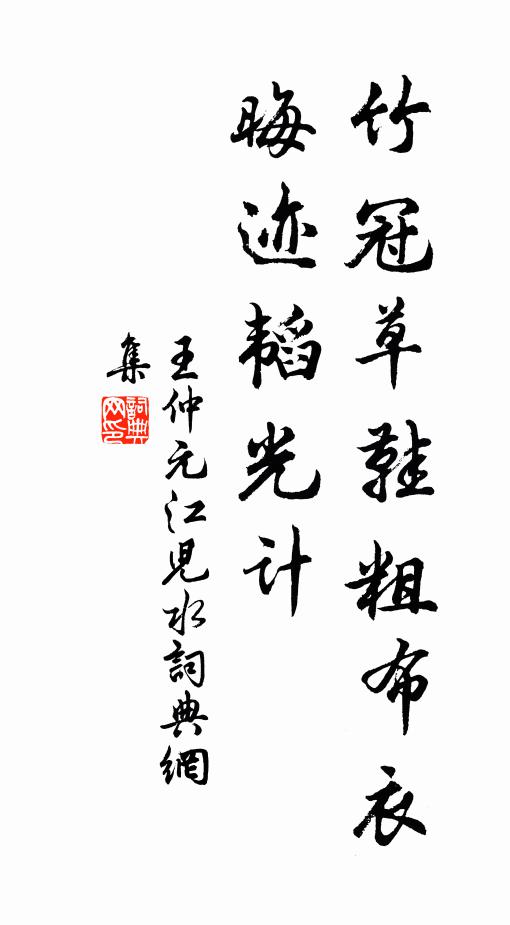 竹冠草鞋粗布衣
晦迹韬光计
王仲元江児水詞典網
集
詞典
网印